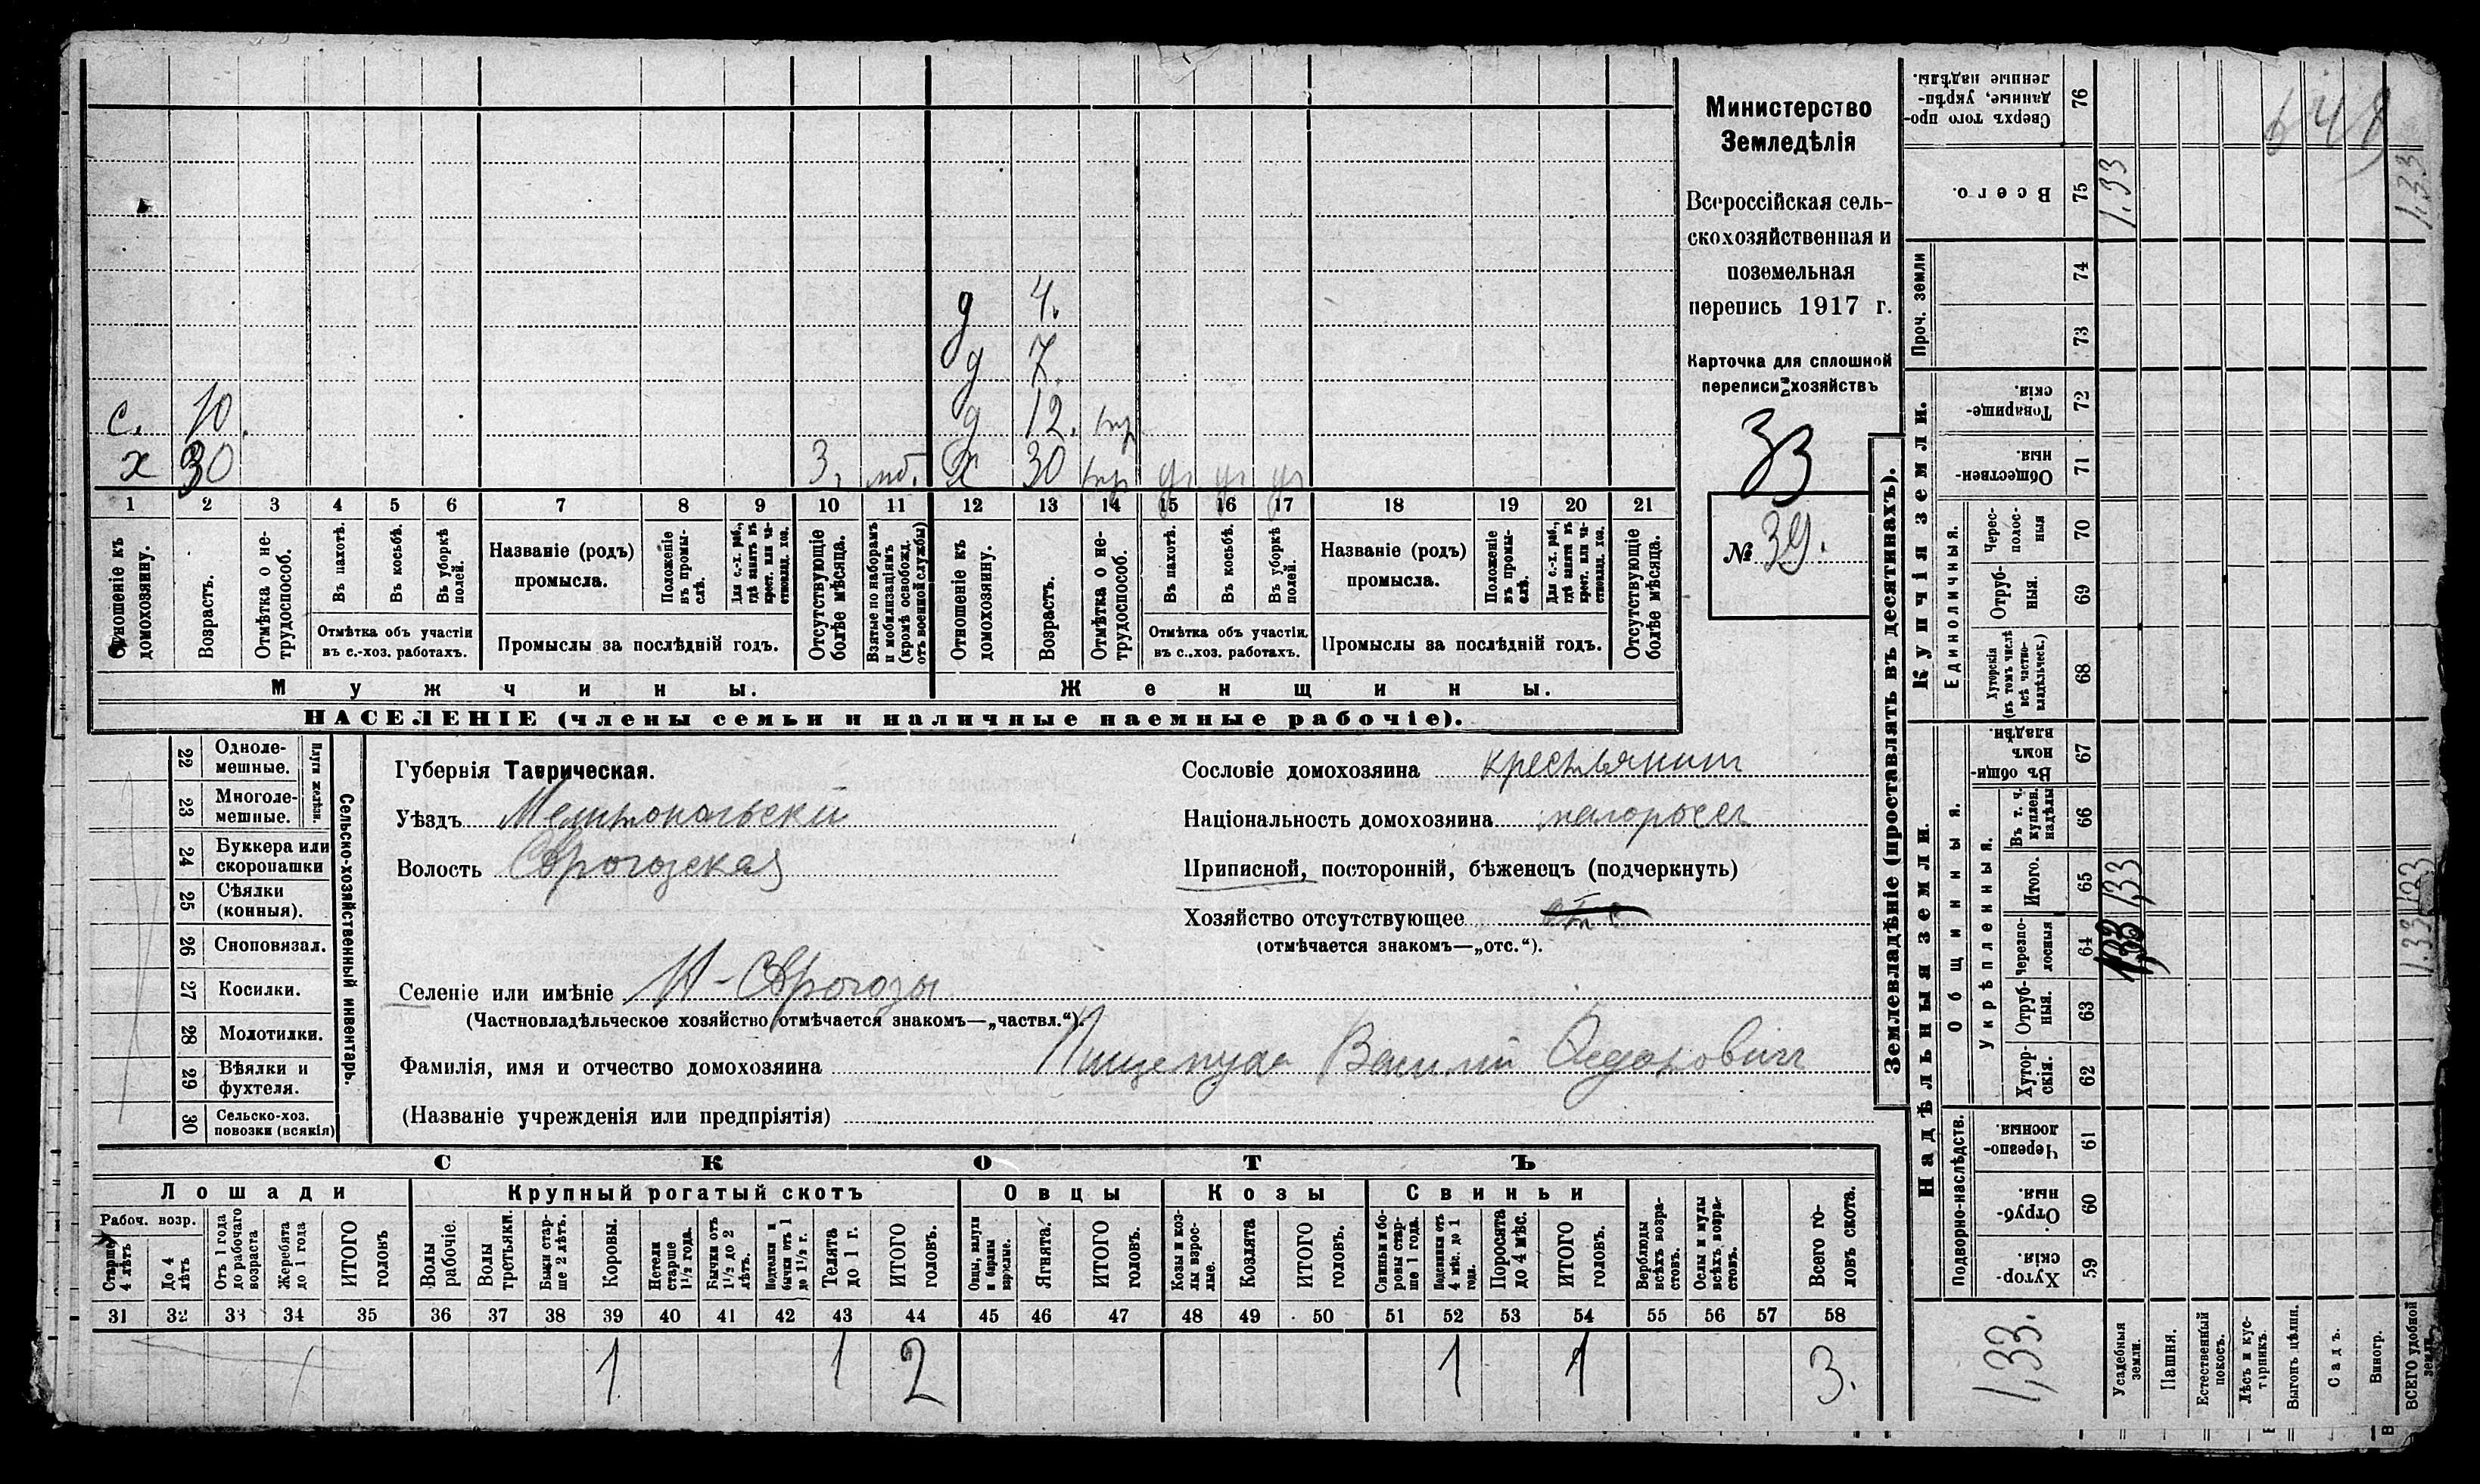 д 4.
д 7
с. 10. д 12. нр
х 30 3, мб. Х 30 нр уч уч уч
1 2 3 4 5 6 7 8 9 10 11 12 13 14 15 16 17 18 19 20 21
Отношеніе къ домохозяину.
Возрастъ.
Отмѣтка о не-трудоспособ.
Въ пахотѣ.
Въ косьбѣ.
Въ уборкѣ полей.
Отмѣтка объ участіи
въ с.-хоз. работахъ.
Названіе (родъ)
промысла.
Положеніе въ промы-слѣ.
Для с.-х. раб., гдѣ занятъ въ крест. или ча-стновлад. хоз.
Промыслы за послѣдній годъ.
Отсутствующіе болѣе мѣсяца.
Взятые по наборамъ и мобилизаціямъ (кромѣ освобожд. отъ военной службы)
Отношеніе къ домохозяину.
Возрастъ.
Отмѣтка о не-трудоспособ.
Въ пахотѣ.
Въ косьбѣ.
Въ уборкѣ полей.
Отмѣтка объ участіи
въ с.-хоз. работахъ.
Названіе (родъ)
промысла.
Положеніе въ промы-слѣ.
Для с.-х. раб., гдѣ занята въ крест. или ча-стновлад. хоз.
Промыслы за послѣдній годъ.
Отсутствующіе болѣе мѣсяца.
Мужчины. Женщины.
НАСЕЛЕНІЕ (члены семьи и наличные наемные рабочіе).
Министерство
Земледѣлія
Всероссійская сель-
скохозяйственная и
поземельная
перепись 1917 г.
Карточка для сплошной
переписи хозяйствъ
33
№ 39.
22 Одноле-
мешные.
23 Многоле-
мешные.
Плуги желѣзн.
24 Буккера или
скоропашки
25 Сѣялки
(конныя).
26 Сноповязал.
27 Косилки.
28 Молотилки.
29 Вѣялки и
фухтеля.
30 Сельско-хоз.
повозки (всякія)
Сельско-хозяйственный инвентарь.
Губернія Таврическая.
Уѣздъ Мелитопольскій
Волость
Селеніе или имѣніе
(Частновладѣльческое хозяйство отмѣчается знакомъ—„частвл.“).
Фамилія, имя и отчество домохозяина Пищемуха Василій
(Названіе учрежденія или предпріятія)
Сословіе домохозяина крестьянин
Національность домохозяина малоросс
Приписной, посторонній, бѣженецъ (подчеркнуть)
Хозяйство отсутствующее отс
(отмѣчается знакомъ—„отс.“).
СКОТЪ
Лошади Крупный рогатый скотъ Овцы Козы Свиньи
Рабоч. возр.
Старше 4 лѣтъ
До 4 лѣтъ
Отъ 1 года до рабочаго возраста
Жеребята до 1 года
ИТОГО головъ
Волы рабочіе.
Волы третьяки.
Быки стар-ше 2 лѣтъ.
Коровы.
Нетели старше 1½ года.
Бычки отъ 1½ до 2 лѣтъ.
Нетелки и бычки отъ 1 до 1½ г.
Телята до 1 г.
ИТОГО головъ.
Овцы, валухи и бараны взрослые.
Ягнята.
ИТОГО головъ.
Козы и коз-лы взрос-лые.
Козлята
ИТОГО головъ.
Свиньи и бо-ровы стар-ше 1 года.
Подсвинки отъ 4 мѣс. до 1 года.
Поросята до 4 мѣс.
ИТОГО головъ.
Верблюды всѣхъ возра-стовъ.
Ослы и мулы всѣхъ возра-стовъ.
Всего го-ловъ скота.
31 32 33 34 35 36 37 38 39 40 41 42 43 44 45 46 47 48 49 50 51 52 53 54 55 56 57 58
1 1 2 1 1 3.
Землевладѣніе (проставлять въ десятинахъ).
Купчія земли.
Надѣльныя земли.
Проч. земли
Единоличныя.
Общинныя.
Укрѣпленныя.
Подворно-наслѣдств.
Сверхъ того про-данные, укрѣп-ленные надѣлы. 76
Всего. 75 1.33 1.33
74
73
Товарище-скія. 72
Обществен-ныя. 71
Черес-полос-ныя 70
Отруб-ныя. 69
Хуторскія (въ томъ числѣ всѣ частно-владѣльческ.) 68
Въ общин-номъ владѣн. 67
Въ т. ч. куплен. надѣлы 66
Итого. 65 1,33 1.33
Черезпо-лосныя 64 1,33 1.33
Отруб-ныя. 63
Хутор-скія. 62
Черезпо-лосныя. 61
Отруб-ныя. 60
Хутор-скія. 59
1,33.
Усадебныя земли.
Пашня.
Естественный покосъ.
Лѣсъ и кус-тарникъ.
Выгонъ цѣлин.
Садъ.
Виногр.
ВСЕГО удобной земли.
648